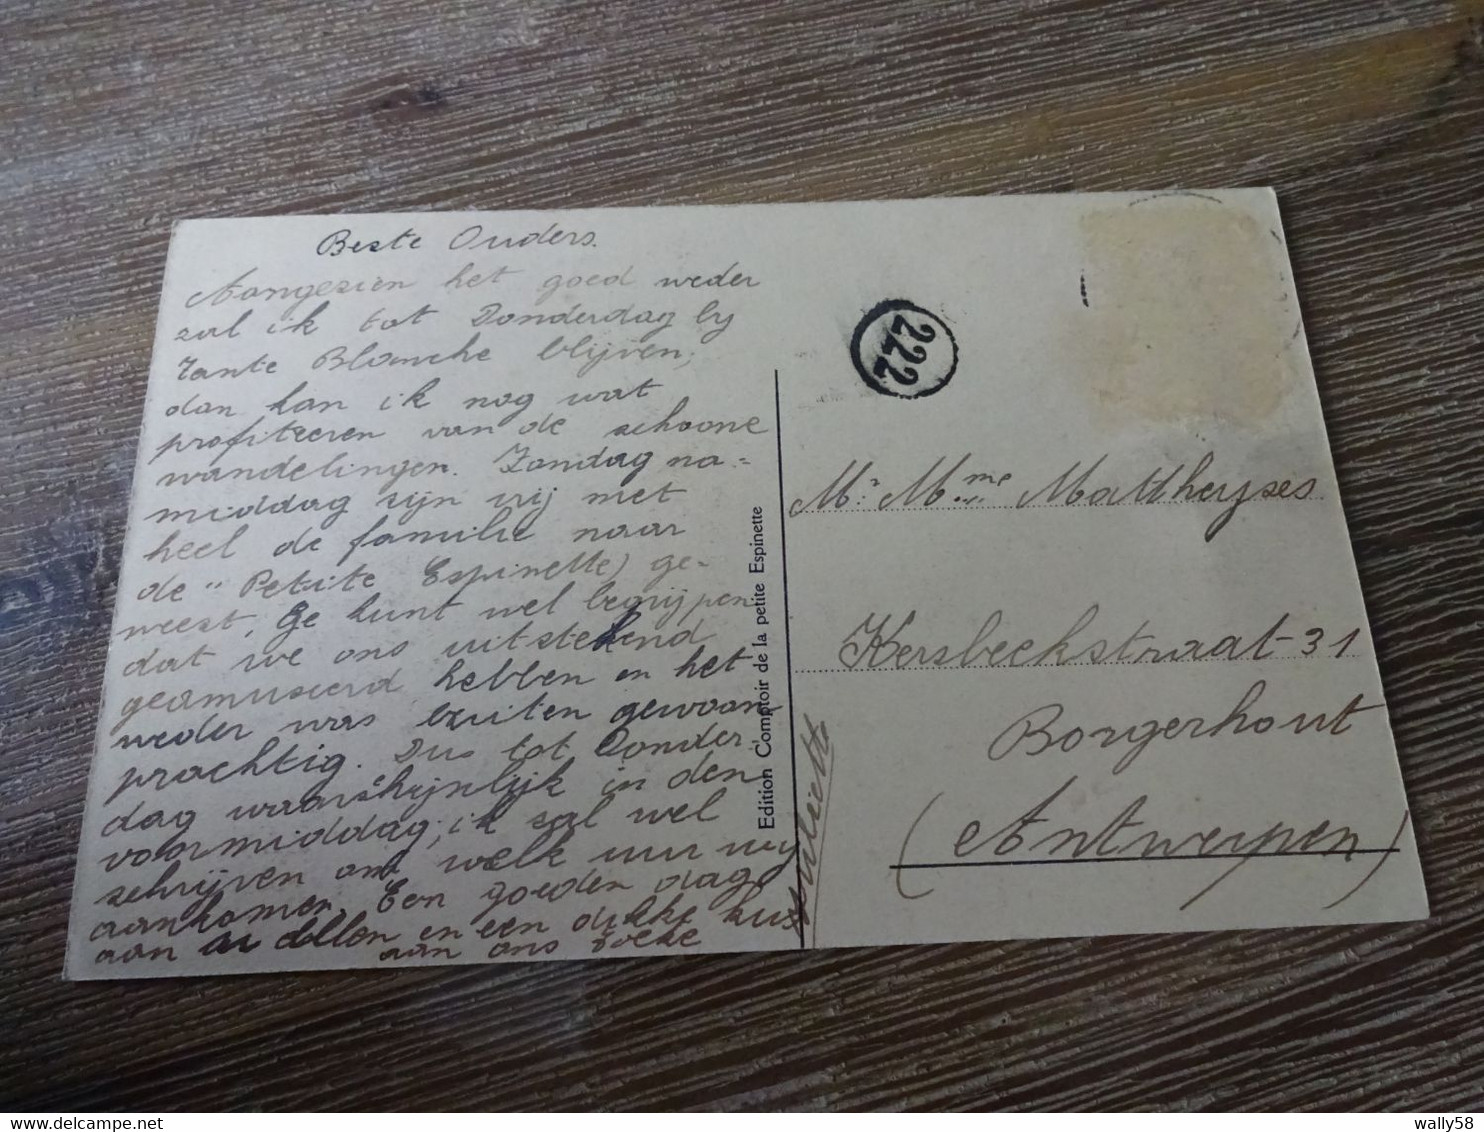 Beste Ouders.
Aangezien het goed weder
zal ik tot Donderdag by
Tante Blanche blijven,
dan kan ik nog wat
profiteeren van de schoone
wandelingen. Zondag na=
middag zijn wij met
heel de familie naar
de "Petite Espinette) ge-
weest. Ge kunt wel begrijpen
dat we ons uitstekend
geamuseerd hebben en het
weder was buiten gewoon
prachtig. Dus tot Donder
dag waarschijnlijk in den
voormiddag, ik zal wel
schrijven om welk uur wij
aankomen. Een goeden dag
aan allen en een dikke kus
aan ons Zoeke
Juliette
Edition Comptoir de la petite Espinette
222
Mr Mme Mattheyses
Kersbeekstraat-31
Borgerhout
(Antwerpen)
delcampe.net
wally58